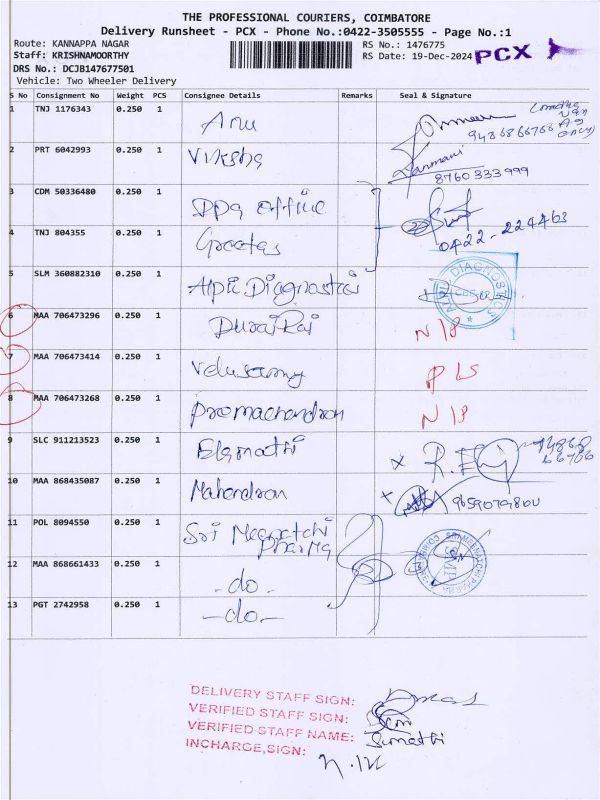 THE PROFESSIONAL COURIERS, COIMBATORE
Delivery Runsheet - PCX - Phone No.:0422-3505555 - Page No.:1
Route: KANNAPPA NAGAR
RS No.: 1476775
Staff: KRISHNAMOORTHY
RS Date: 19-Dec-2024
PCX
DRS No.: DCJB147677501
Vehicle: Two Wheeler Delivery
S No Consignment No Weight PCS Consignee Details Remarks Seal & Signature
1 TNJ 1176343 0.250 1 Anu
2 PRT 6042993 0.250 1 8760333999
3 CDM 50336480 0.250 1 Office
4 TNJ 804355 0.250 1 0422-224463
5 SLM 360882310 0.250 1 Diagnostics
DIAGNOSTICS
6 MAA 706473296 0.250 1 Durai Raj
7 MAA 706473414 0.250 1 Velusamy
8 MAA 706473268 0.250 1 Premachandran
9 SLC 911213523 0.250 1
10 MAA 868435087 0.250 1 Mahendran
11 POL 8094550 0.250 1 Sri Meenatchi Pharma
12 MAA 868661433 0.250 1 -do-
13 PGT 2742958 0.250 1 -do-
DELIVERY STAFF SIGN:
VERIFIED STAFF SIGN:
VERIFIED STAFF NAME: Sumathi
INCHARGE,SIGN: